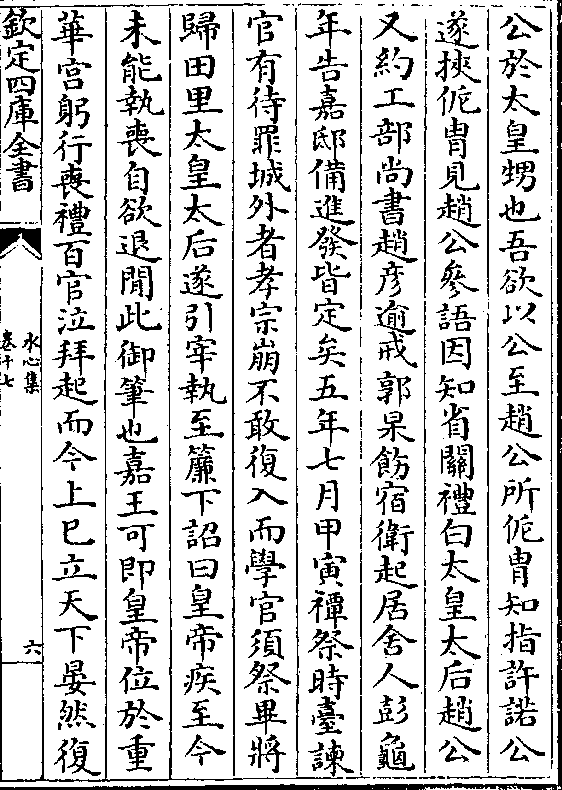 公於太皇甥也吾欲以公至趙公所侂胄知指許諾公
遂挾侂胄見趙公參語因知省關禮白太皇太后趙公
又約工部尚書趙彥逾戒郭杲飭宿衛起居舍人彭龜
年告嘉邸備進發皆定矣五年七月甲寅禫祭時臺諫
官有待罪城外者孝宗崩不敢復入而學官須祭畢將
歸田里太皇太后遂引宰執至簾下詔曰皇帝疾至今
未能執喪自欲退閒此御筆也嘉王可即皇帝位於重
華宫躬行喪禮百官泣拜起而今上已立天下晏然復
欽定四庫全書
水心集
卷十七
六